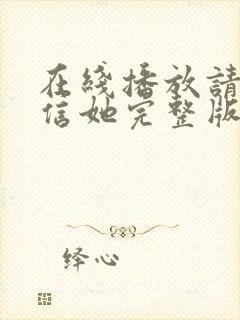 在綫播放請
信她完整版
绎心